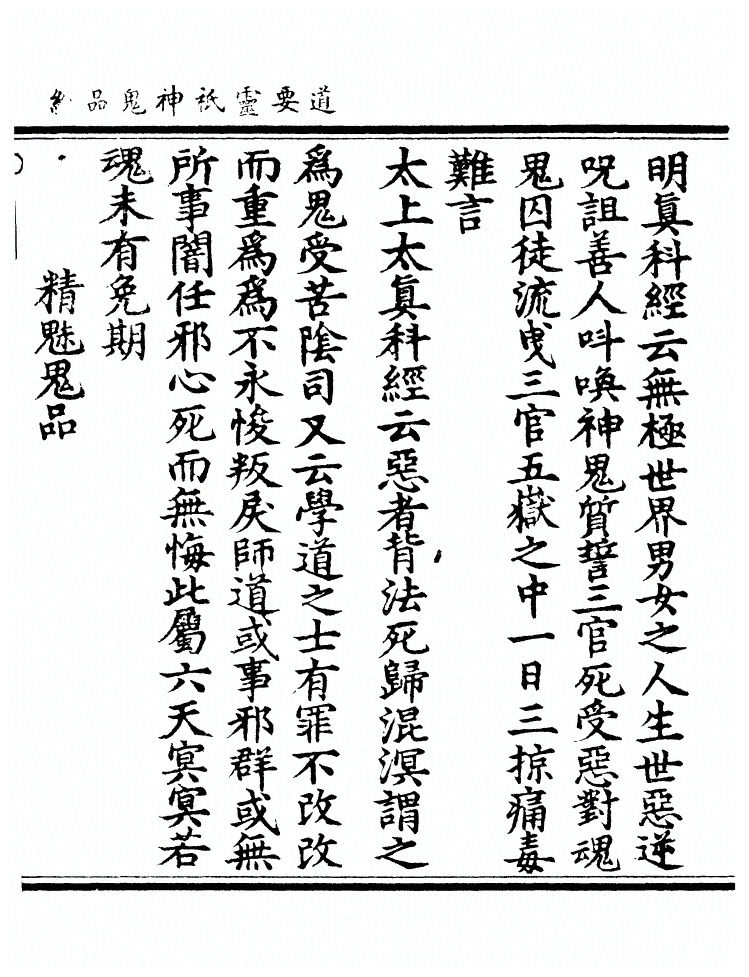 道要靈祇神鬼品
明眞科經云無極世界男女之人生世惡逆
呪詛善人呌喚神鬼質誓三官死受惡對魂
鬼囚徒流曵三官五嶽之中一日三掠痛毒
難言
太上太眞科經云惡者背法死歸混溟謂之
爲鬼受苦陰司又云學道之士有罪不改改
而重爲爲不永悛叛戾師道或事邪群或無
所事闇任邪心死而無悔此屬六天冥冥若
魂未有免期
精魅鬼品